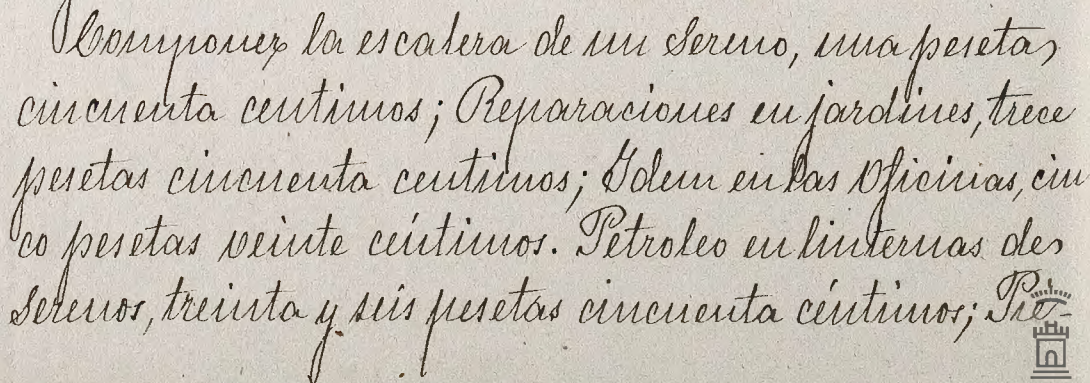 Componer la escalera de un Sereno, una peseta
cincuenta centimos; Reparaciones en jardines, trece
pesetas cincuenta centimos; Idem en las Oficinas, cin
co pesetas veinte céntimos. Petroleo en linternas de
Serenos, treinta y seis pesetas cincuenta céntimos; Pie-